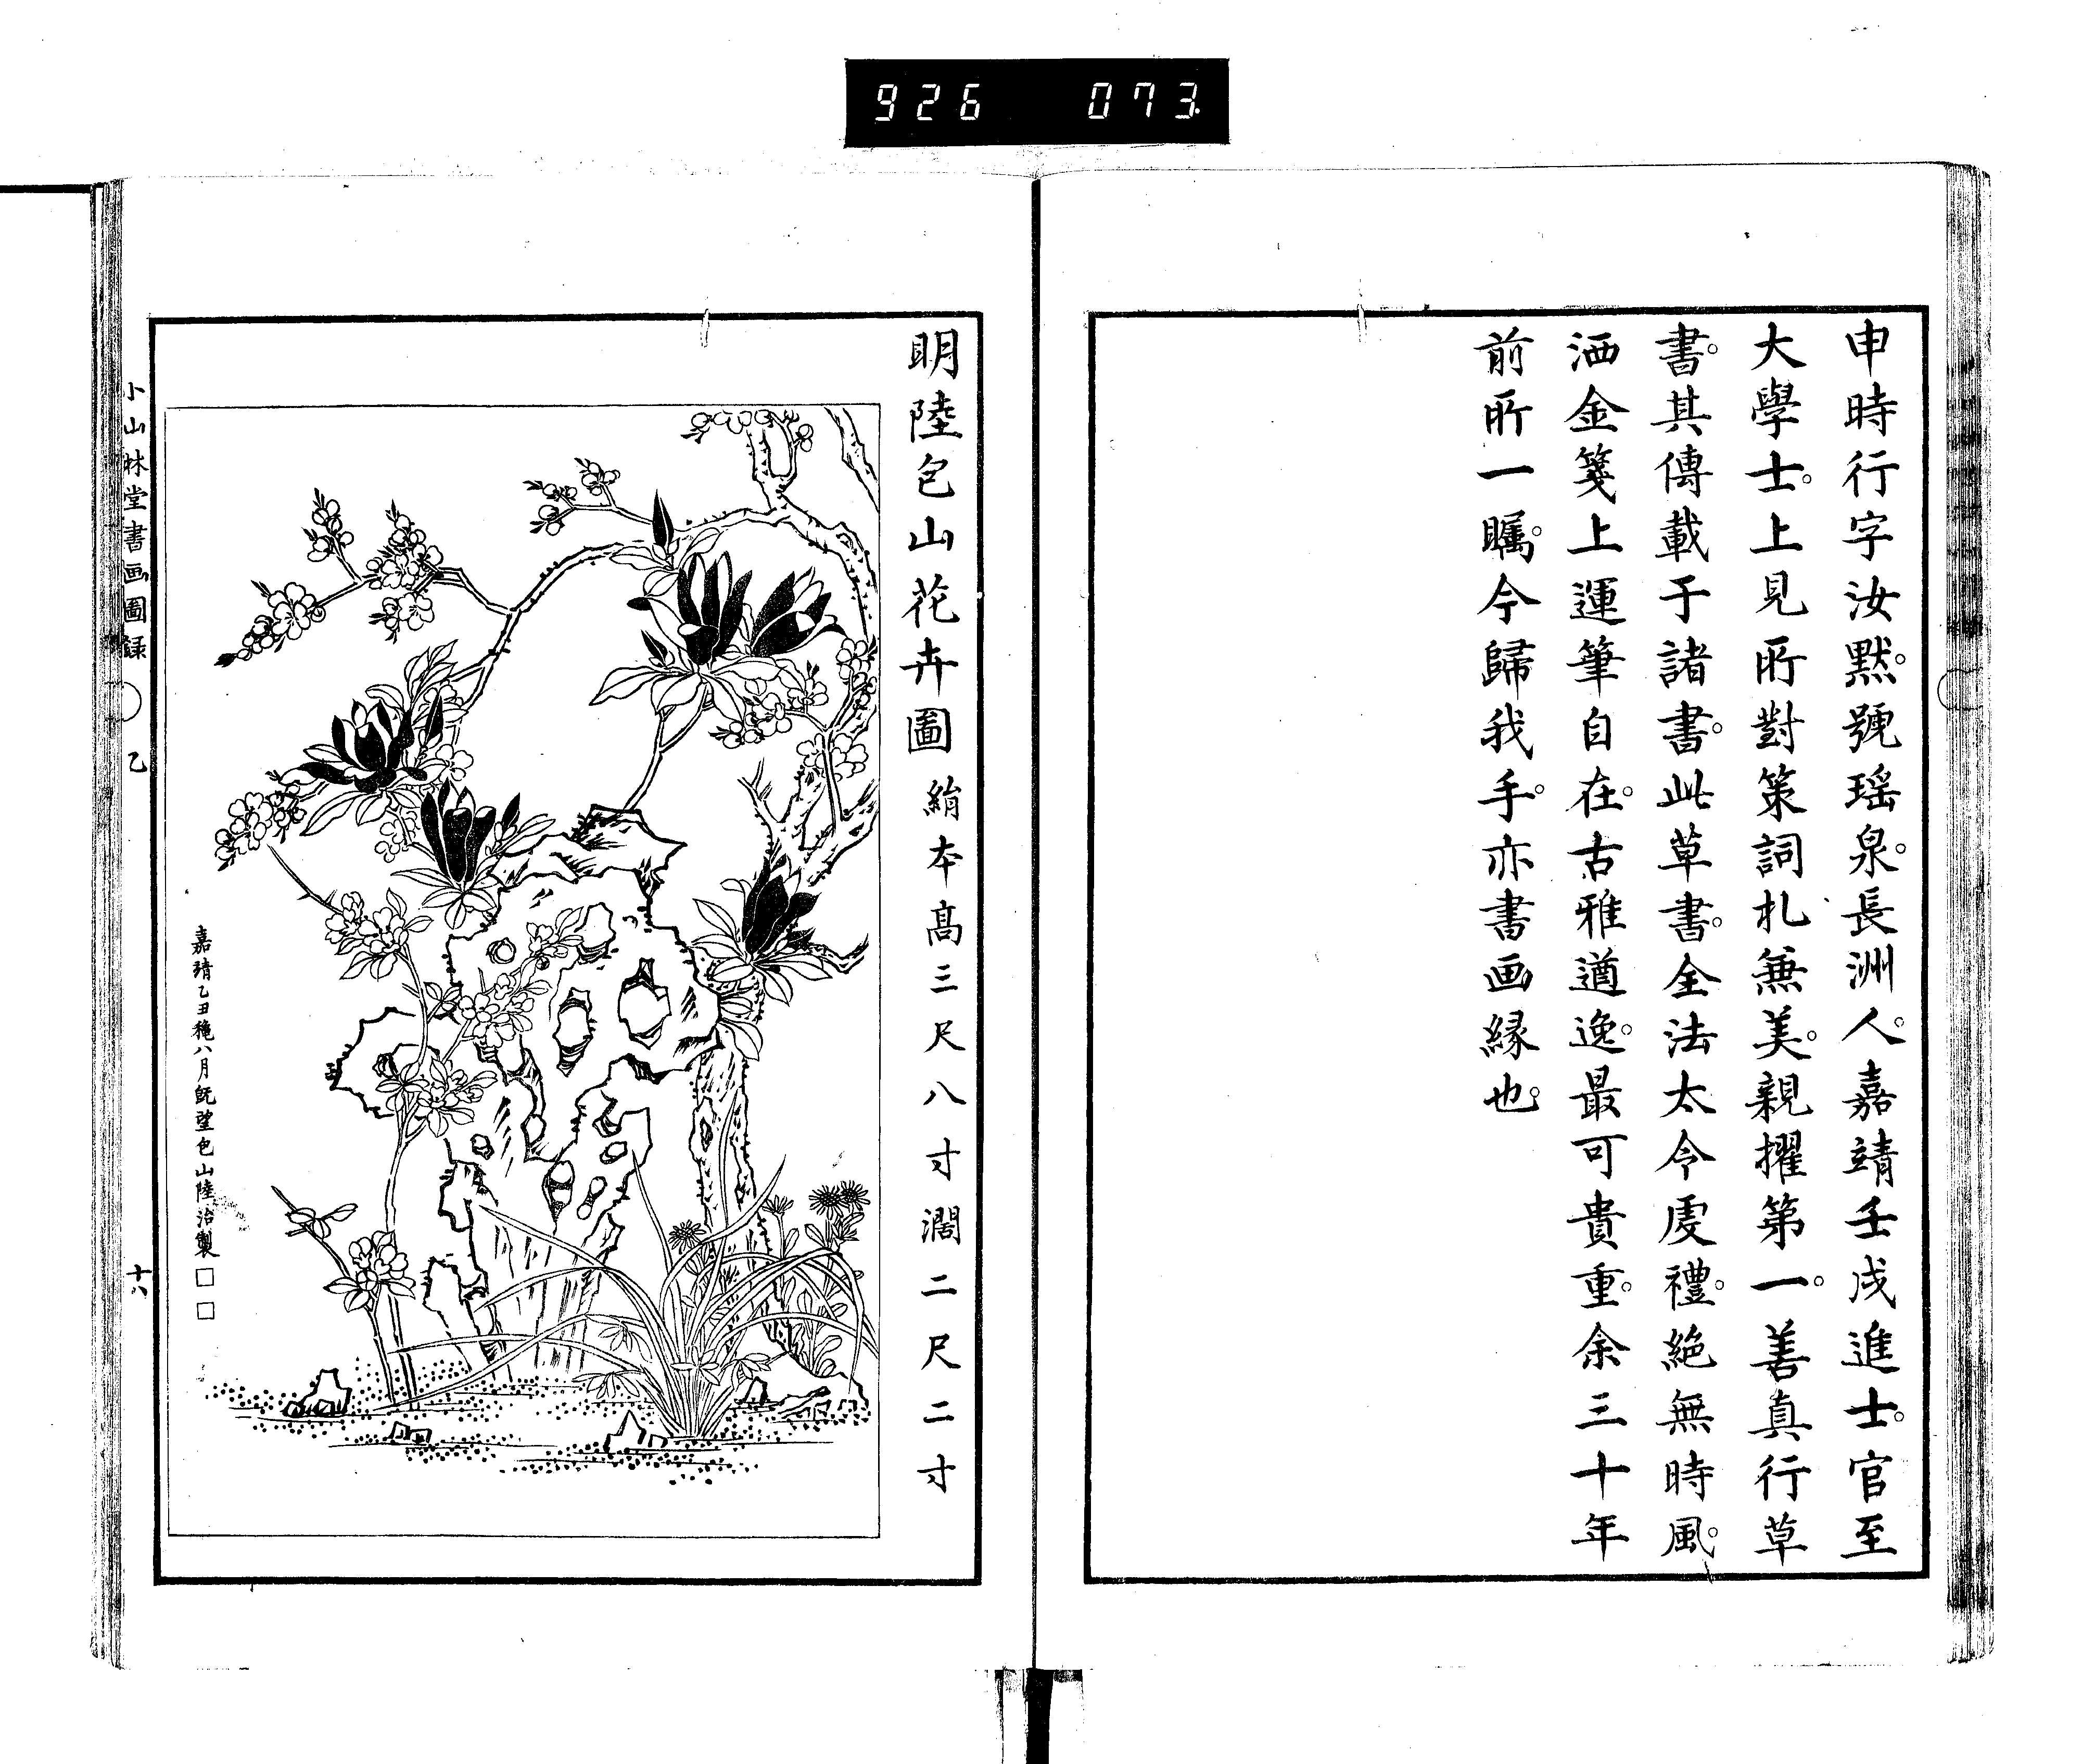 926 073
申時行字汝黙。號瑶泉。長洲人。嘉靖壬戌進士。官至
大學士。上見所對策詞札兼美。親擢第一。善真行草
書。其傳載于諸書。書此草書。全法太令虔禮。絶無時風。
洒金箋上運筆自在。古雅遒逸。最可貴重。余三十年
前所一矚。今歸我手。亦書画縁也。
明陸包山花卉圖 絹本高三尺八寸濶二尺二寸
嘉靖乙丑穐八月既望包山陸治製□□
小山林堂書画圖録 乙 十八